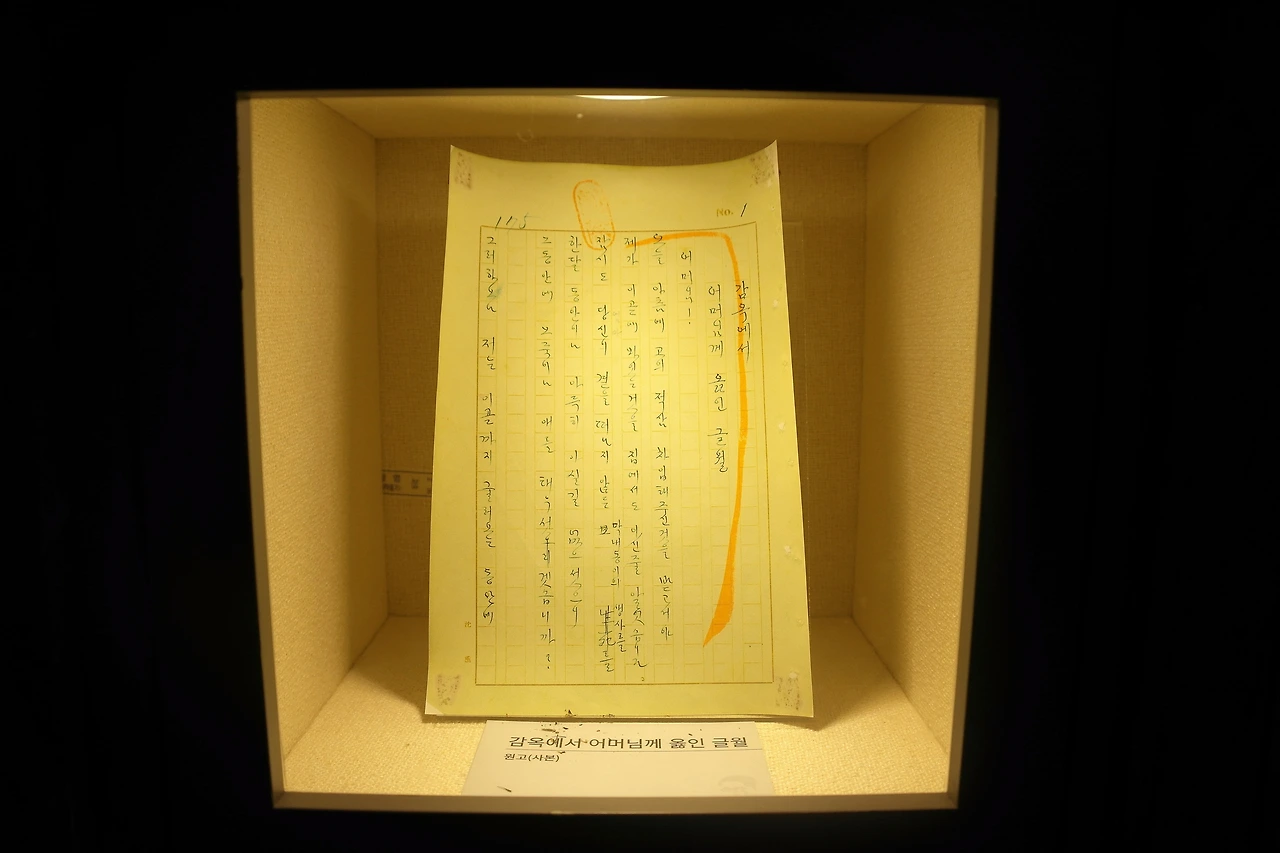 No. 1
감옥에서
어머님께 옳인 글월
어머니!
오늘 아츰에 고의 적삼 차입해주신거슬 받고서야
제가 이곧에 집에서도 아신줄 알엇음니다
잠시도 당신의 곁을 떠나지 않든 막내동이의 생사를
한달 동안이나 아득히 아실길 없으서스니
그동안에 오죽이나 애를
그러하오나 저는 이곧까지 굴러오는 동안에
감옥에서 어머님께 옳인 글월
원고(사본)